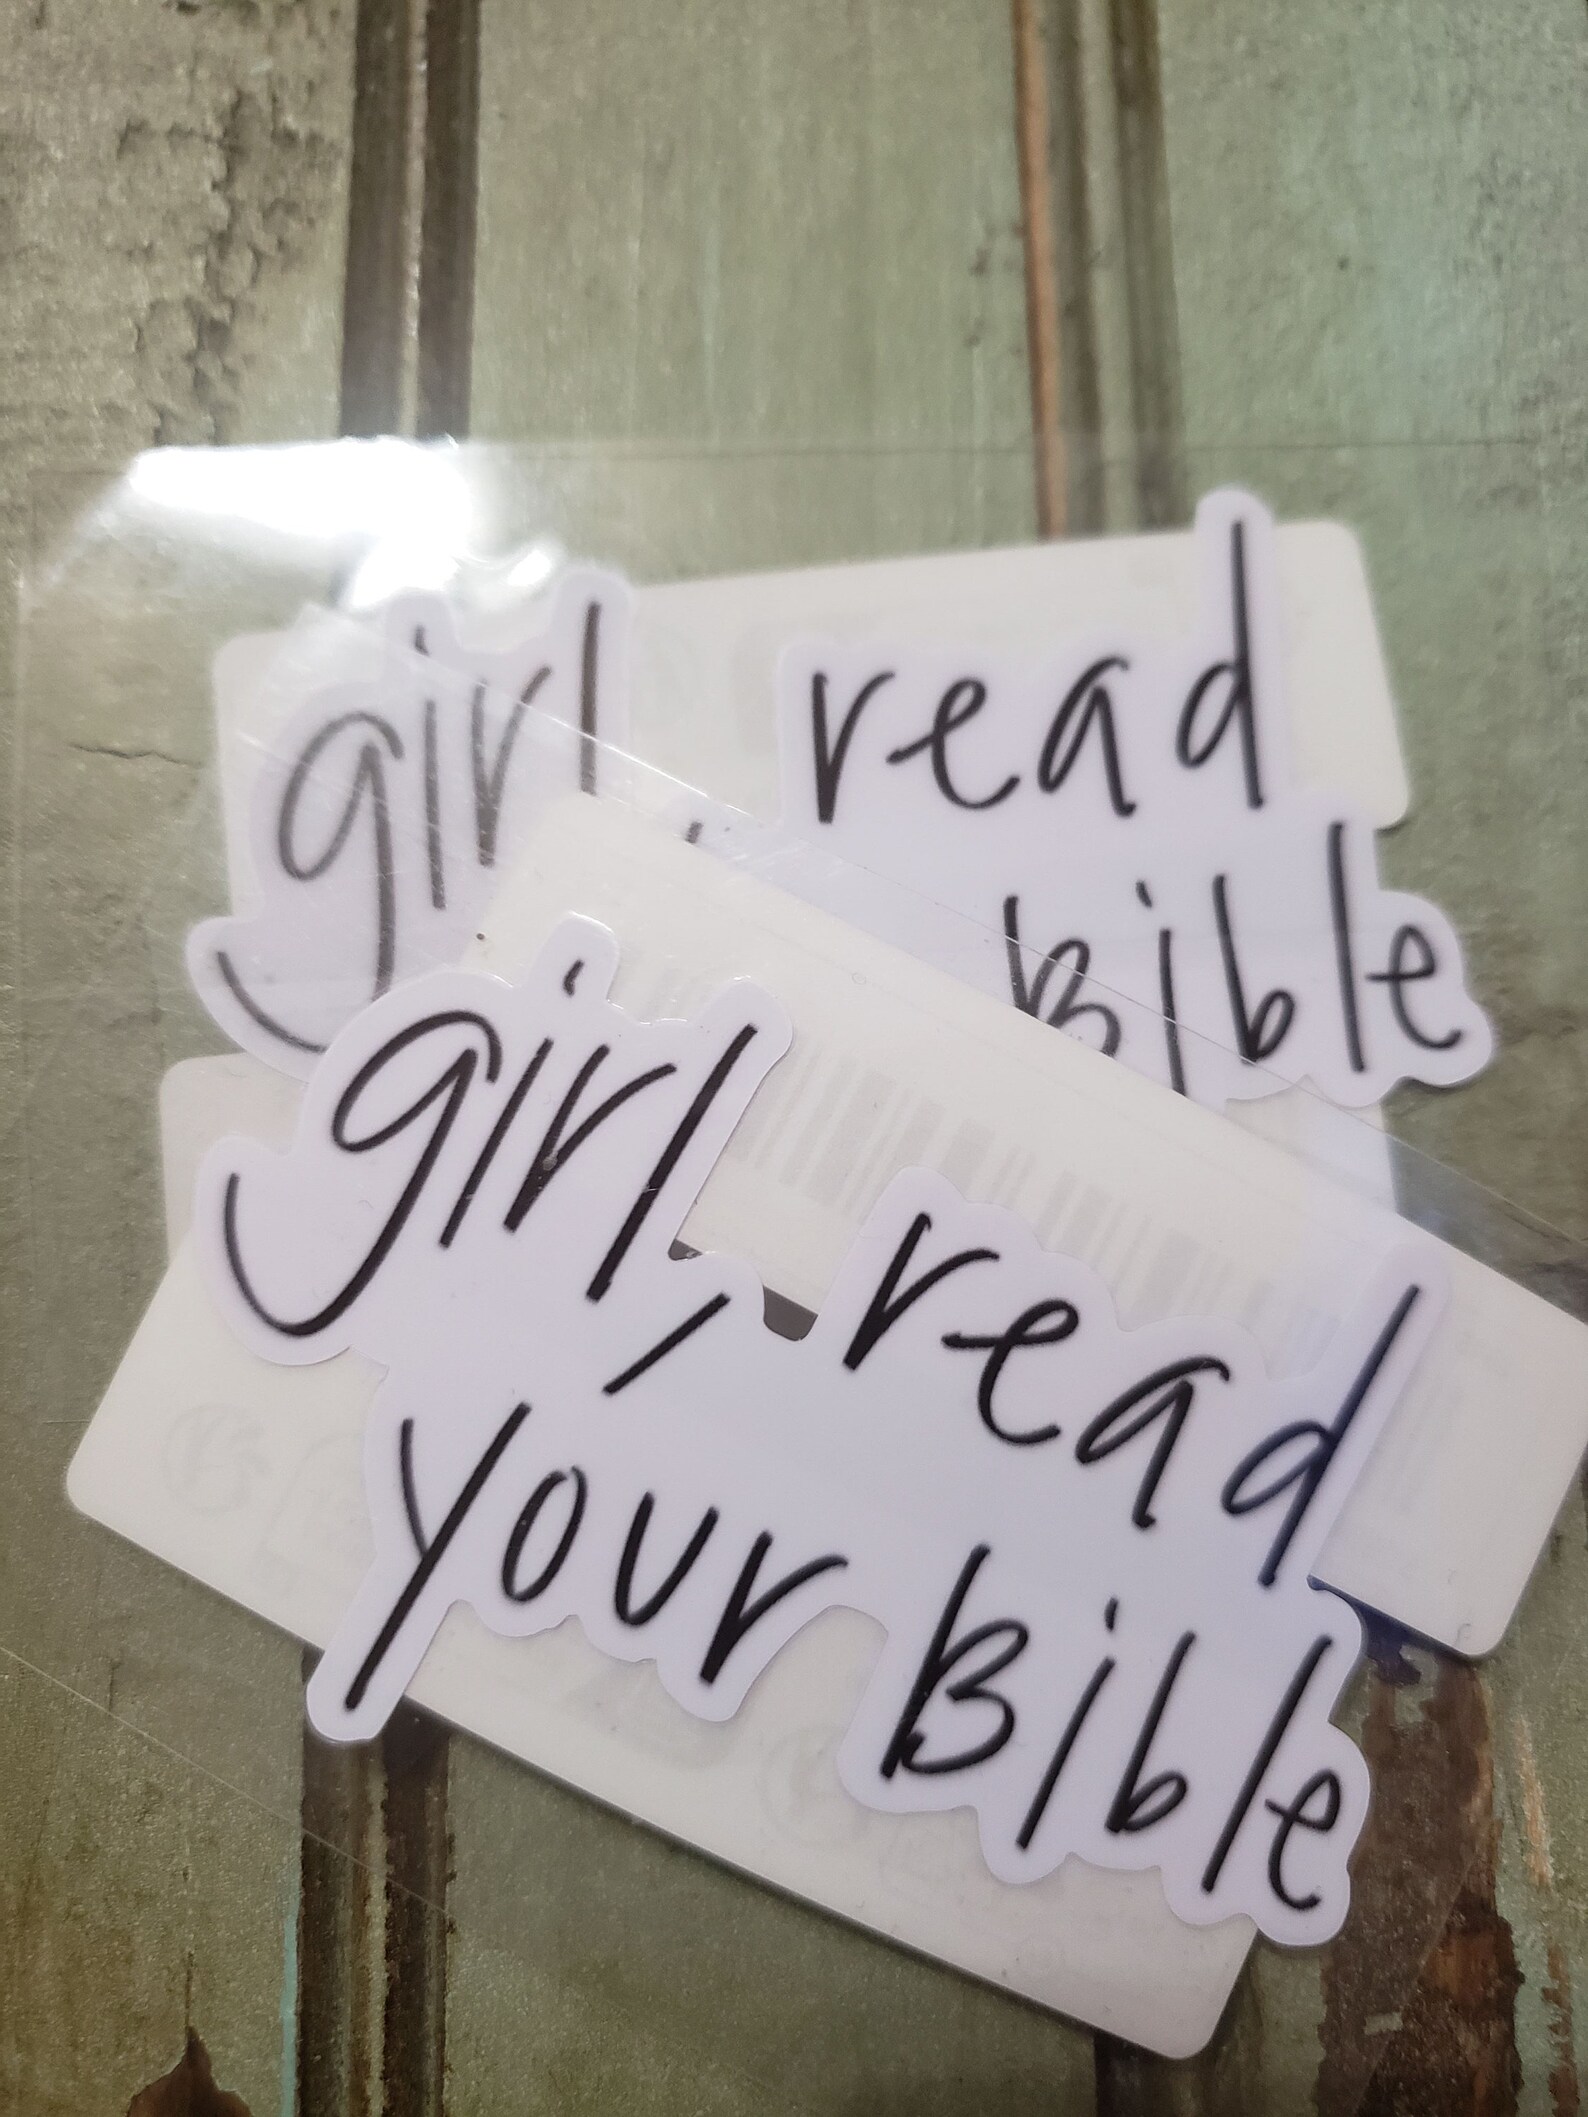 girl, read
Bible
girl, read
your Bible